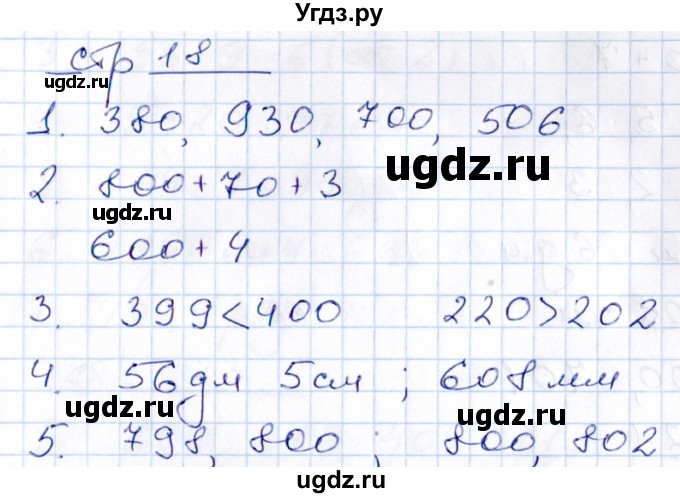 Угдз.ру
стр 18
ugdz.ru
ugdz.ru
1. 380, 930, 700, 506
ugdz.ru
2. 800+70+3
ugdz.ru
600+4
3. 399<400 220>202
4. 56дм 5см ; 608мм
ugdz.ru
ugdz.ru
5. 798, 800 ; 800, 802
ugdz.ru
ugdz.ru